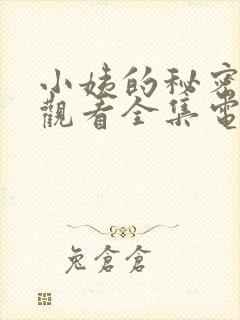 小姨的秘密
觀看全集電
兔倉倉